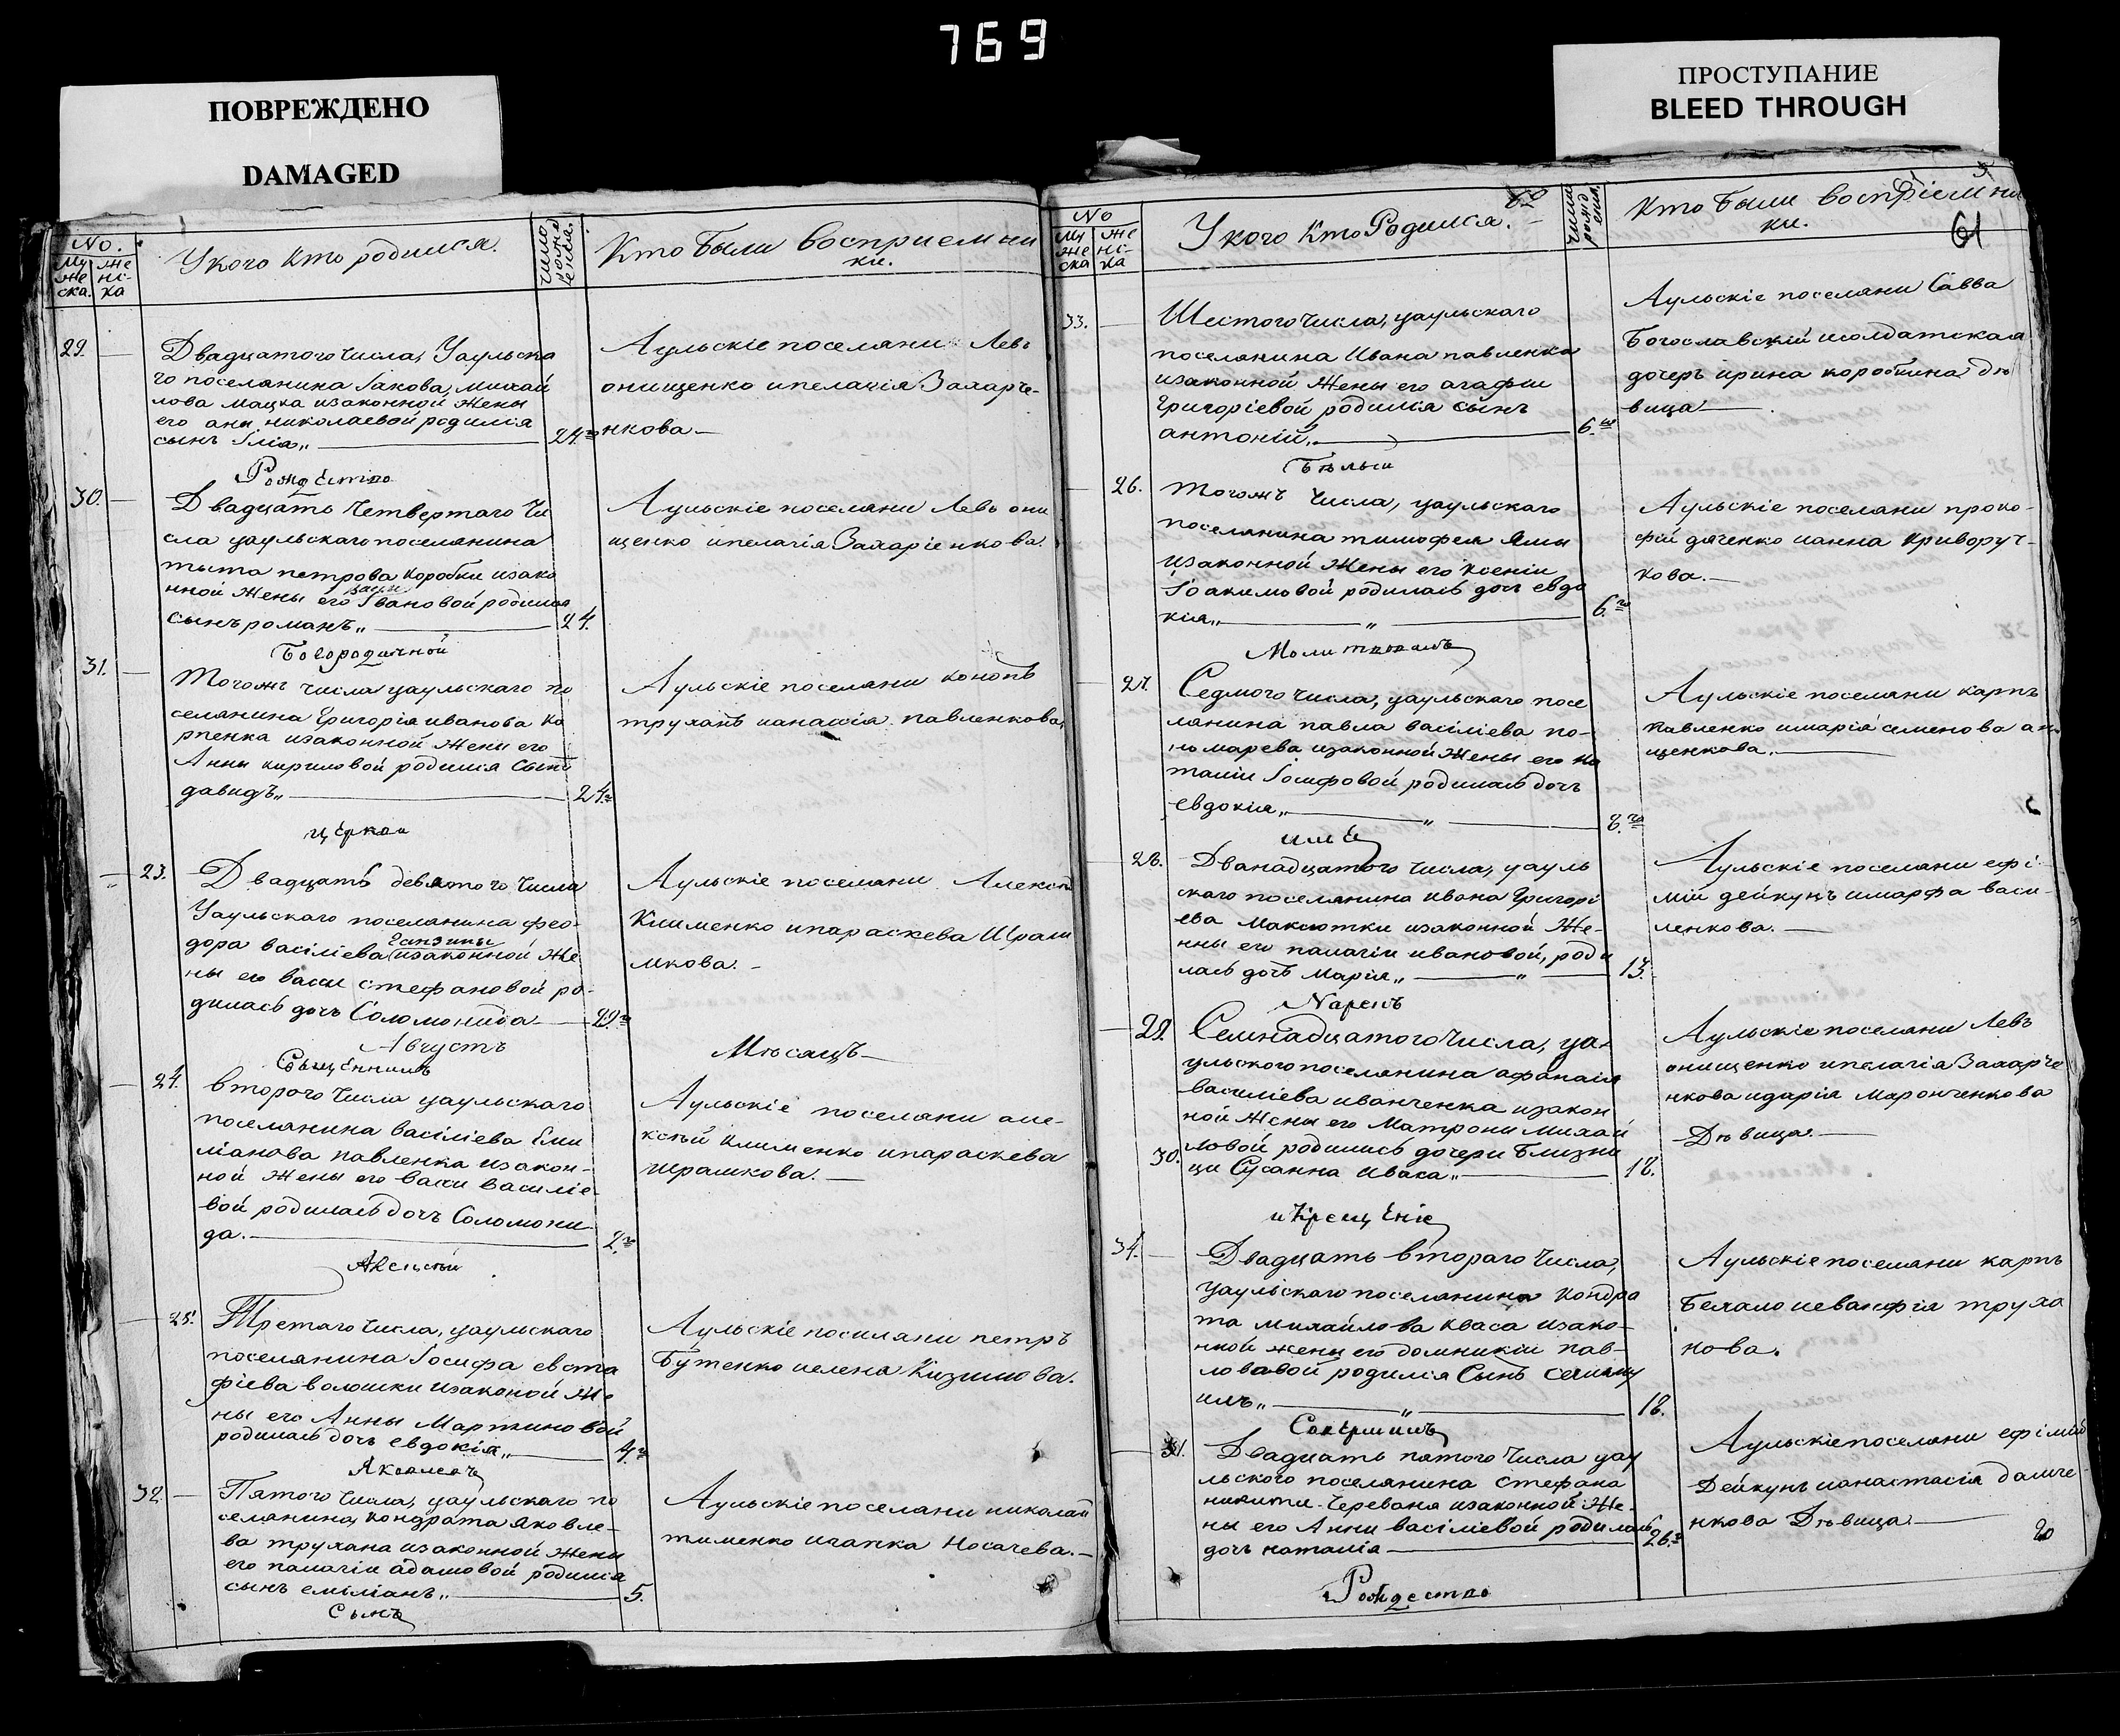 769
ПОВРЕЖДЕНО
DAMAGED
ПРОСТУПАНИЕ
BLEED THROUGH
No.
Му
же
ска.
же
нс-
ка
У кого кто родился.
число
рожд
ения.
Кто были восприемни
ки.
29.
Двадцатого числа, Уаульска
го поселянина Iакова, михай
лова мацка изаконной жены
его аны николаевой родился
сынъ Iлiа„
24.го
Аульскiе поселяни Левъ
онищенко ипелагiя Захарче-
нкова
Рождество
30.
Двадцать четвертаго чи
сла уаульскаго поселянина
тыта петрова коробки изако
нной жены его Iвановой родился
сынъ романъ„
24.
Аульскiе поселяни Левъ они
щенко ипелагiя Захарiенкова.
Богородичной
31.
Тогожъ числа уаульскаго по
селянина григорiя иванова ка
рпенка изаконной жены его
Анны кириловой родился сынъ
давидъ„
24.го
Аульскiе поселяни кононъ
труханъ ианасiя павленкова,
церкви
23.
Двадцать девятого числа
Уаульскаго поселянина фео-
дора васiлiева изаконной же
ны его васи стефановой ро-
дилась дочъ Соломонида
29.го
Аульскiе поселяни Алексей
Клименко ипараскева Шрам
мкова.
Августъ
Мѣсяцъ
Священникъ
24.
второго числа уаульскаго
поселянина васiлiева Еми
лiанова павленка изакон-
ной жены его васи василiе-
вой родилась дочъ Соломони
да.
2.го
Аульскiе поселяни але-
ксѣй клименко ипараскева
шрамкова.
Алексѣй
25.
Третаго числа, уаульскаго
поселянина Iосифа евста
фiева волошки изаконой же
ны его Анны Мартиновой
родилась дочъ евдокiя„
4.го
Аульскiе поселяни петръ
Бутенко иелена Кизимова.
Яковлевъ
32.
Пятого числа, уаульскаго по
селянина, кондрата яковле-
ва трухана изаконной жены
его палагiи адамовой родился
сынъ емiлiанъ„
5.
Аульскiе поселяни николай
тименко игапка Носачева.
Сынъ
No
Му
же
ска
же
нс-
ка
У кого кто Родился.
число
рожд
ения.
Кто были воспрiемни
ки.
61
33.
Шестого числа, уаульскаго
поселянина Ивана павленка
изаконной жены его агафии
Григорiевой родился сынъ
антонiй„
6.го
Аульскiе поселяни Савва
Богославскiй исолдатская
дочеръ ирина коробкина дѣ
вица
Бѣлый
26.
тогожъ числа, уаульскаго
поселянина тимофея ямы
изаконной жены его ксенiи
Iоакимовой родилась дочъ евдо
кiя„
6.го
Аульскiе поселяни проко-
фiй дяченко ианна криворуч-
кова.
Молитвовалъ
27.
Седмого числа, уаульскаго посе
лянина павла васiлiева по-
номарева изаконной жены его на
талiи Iосифовой родилась дочъ
евдокiя„
8.го
Аульскiе поселяни карпъ
павленко имарiя семенова
щенкова.
имя
28.
Дванадцатого числа, уауль
скаго поселянина ивана григорi
ева Максютки изаконной же-
нны его палагiи ивановой, роди
лась дочъ марiя„
13.
Аульскiе поселяни ефi-
мiй дейкунъ имарфа васи-
ленкова.
Нарекъ
29.
Семнадцатого числа, уа-
ульского поселянина афанасiя
василiева иванченка изакон
ной жены его Матрони михай
ловой родились дочери близни
30.
ци Сусанна иваса„
18.
Аульскiе поселяни Левъ
онищенко ипелагiя Захарче
нкова идарiя маронченкова
Дѣвица.
икрещенiе
34.
Двадцать втораго числа,
уаульскаго поселянина кондра
та михайлова кваса изако-
нной жены его домникiи пав-
ловавой родился Сынъ самой
илъ„
18.
Аульскiе поселяни карпъ
Белало иевамфiя труха
нова.
Совершилъ
31.
Двадцать пятого числа уау
льского поселянина стефана
никити череваня изаконной же-
ны его Анни васiлiевой родилась
дочъ наталiя
26.го
Аульскiе поселяни ефiмiй
Дейкунъ ианастасiя далече
нкова Дѣвица
Рождество